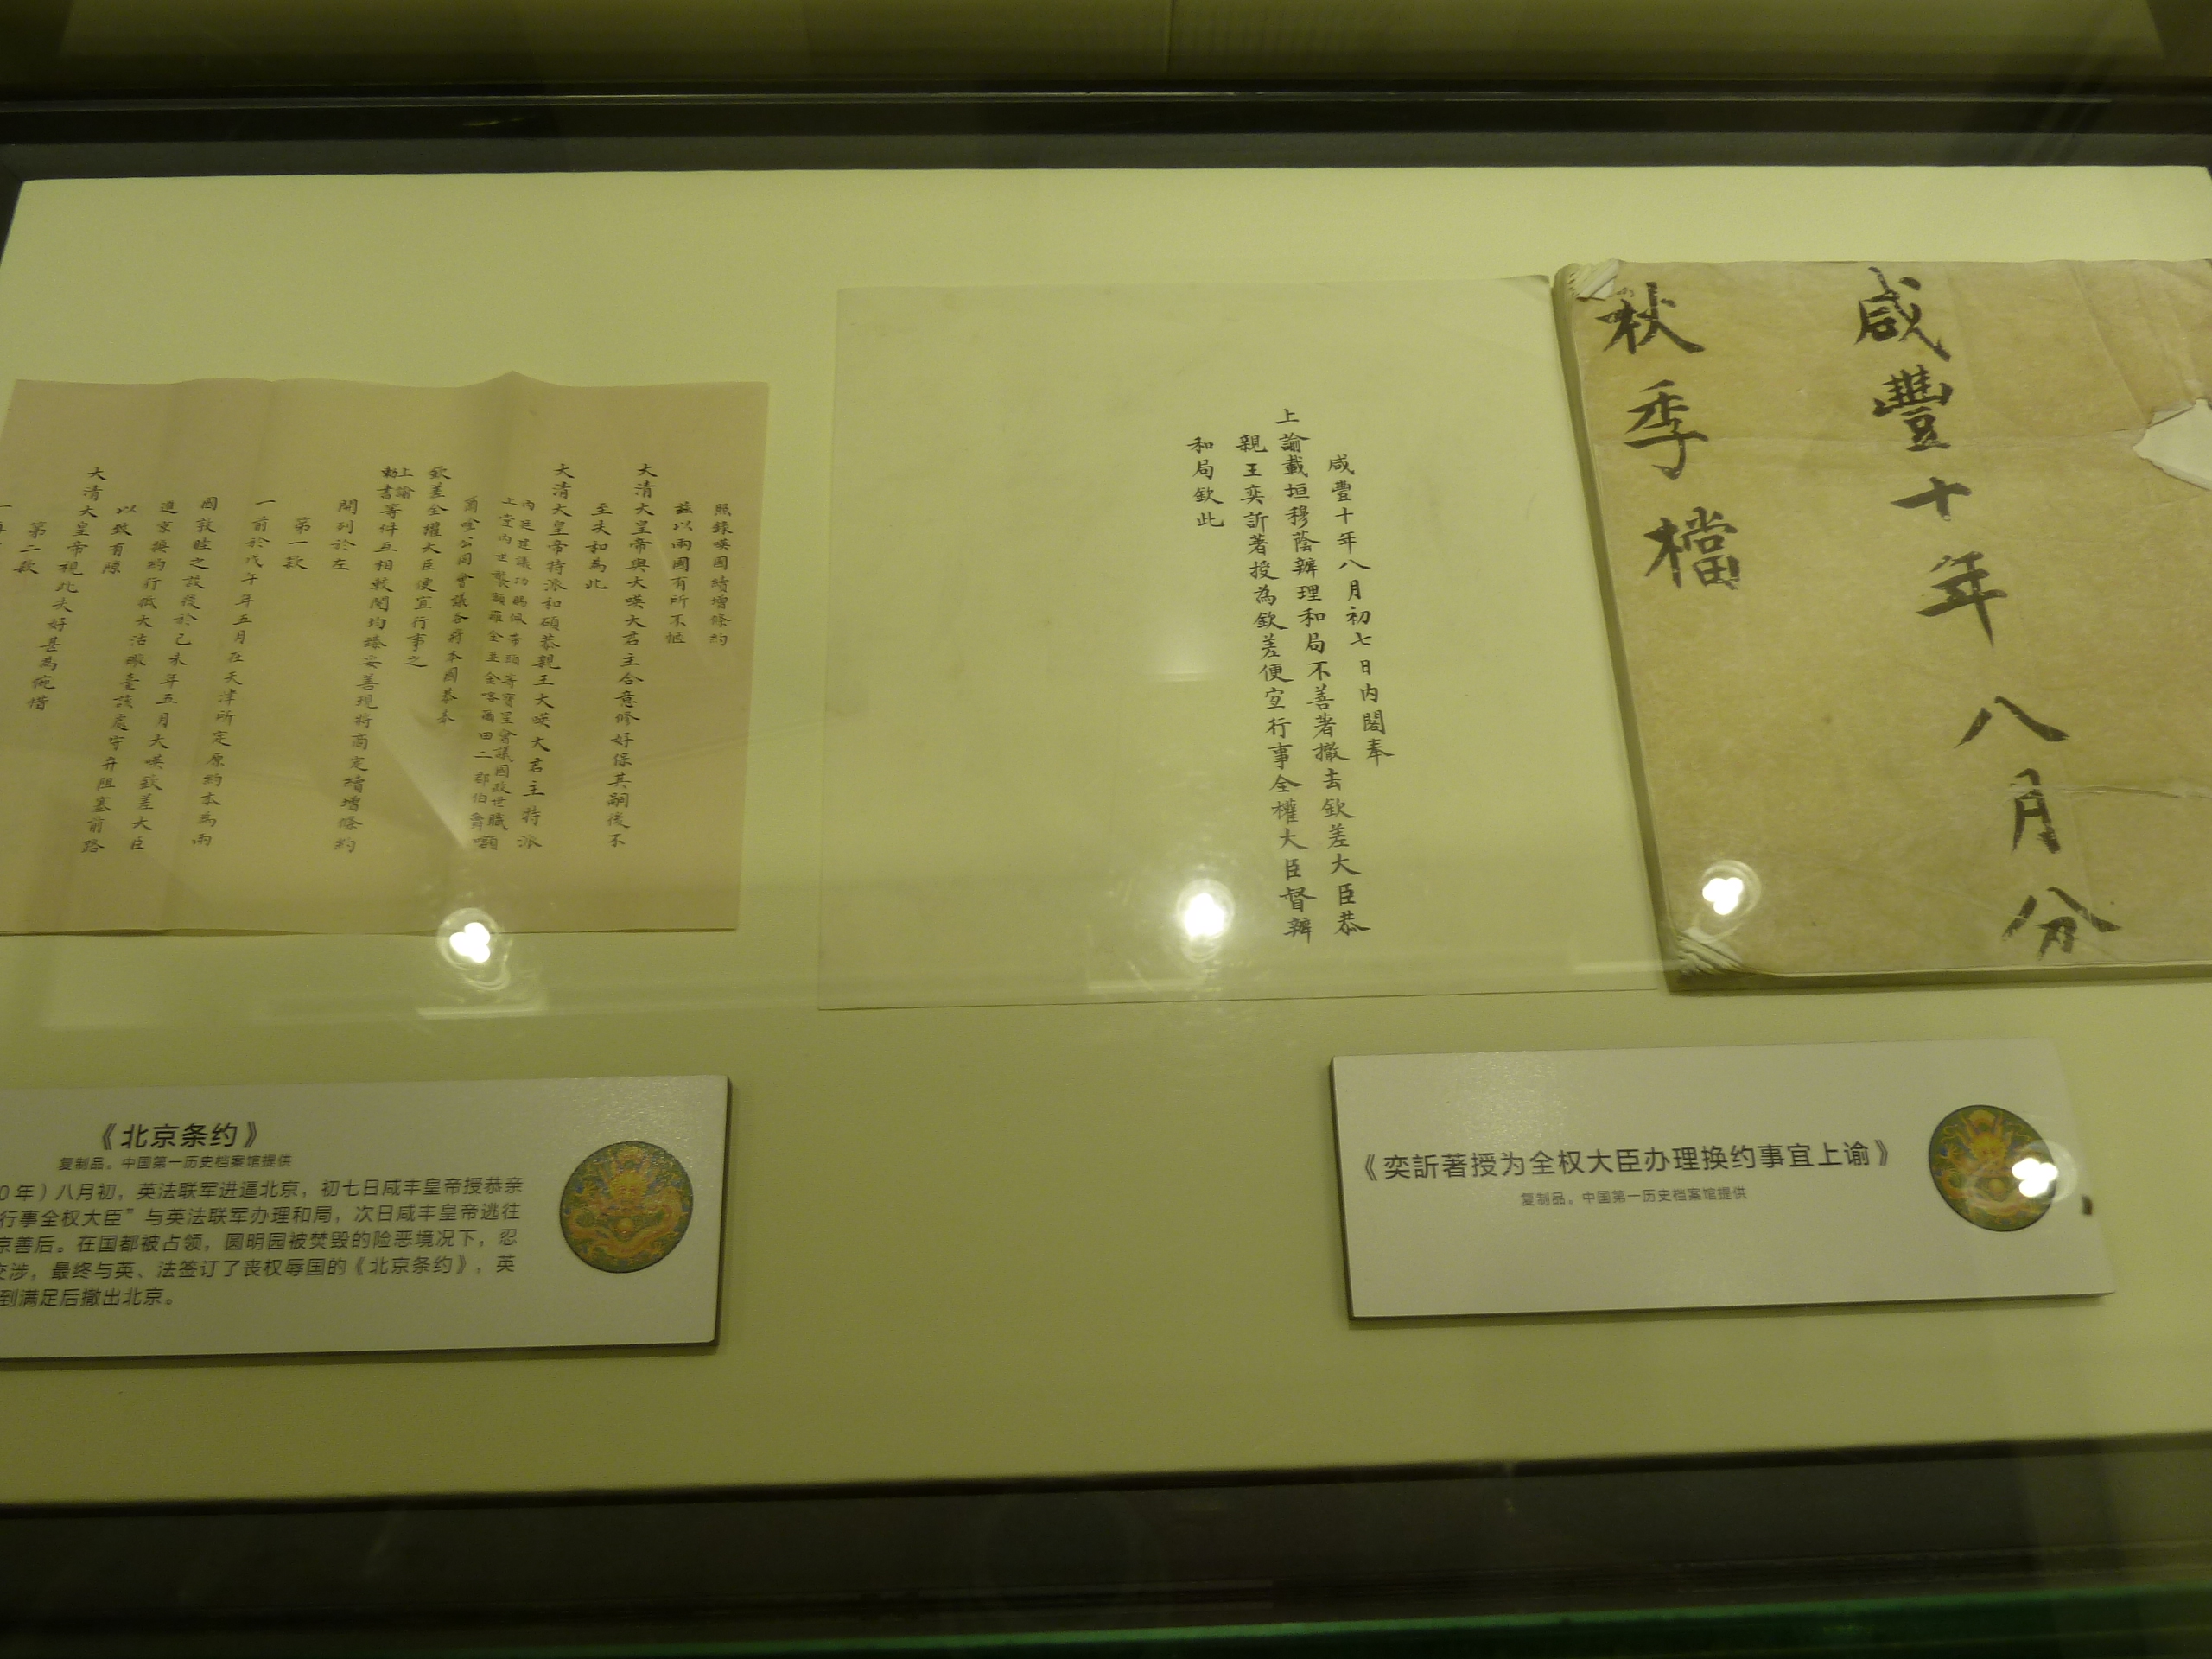 咸豐十年八月分
秋季檔
咸豐十年八月初七日内閣奉
上諭載垣穆蔭辦理和局不善著撤去欽差大臣恭
親王奕訢著授為欽差便宜行事全權大臣督辦
和局欽此
照錄㖫國續增條約
茲以兩國有所不愜
大清大皇帝與大㖫大君主合意修好保其嗣後不
至失和為此
大清大皇帝特派和碩恭親王大㖫大君主特派
内廷建議功賜佩帶頭等寶星會議國政世職
上堂内世襲額羅金並金喀爾田二郡伯爵額
爾唫公同會議各將本國恭奉
欽差全權大臣便宜行事之
上諭
勅書等件互相較閱均臻妥善現將商定續增條約
開列於左
第一款
一前於戊午年五月在天津所定原約本為兩
國敦睦之設後於己未年五月大㖫欽差大臣
進京換約行抵大沽礮臺該處守弁阻塞前路
以致有隙
大清大皇帝視此失好甚為惋惜
第二款
《北京条约》
复制品。中国第一历史档案馆提供
0年）八月初，英法联军进逼北京，初七日咸丰皇帝授恭亲
行事全权大臣”与英法联军办理和局，次日咸丰皇帝逃往
京善后。在国都被占领，圆明园被焚毁的险恶境况下，忍
交涉，最终与英、法签订了丧权辱国的《北京条约》，英
到满足后撤出北京。
《奕訢著授为全权大臣办理换约事宜上谕》
复制品。中国第一历史档案馆提供